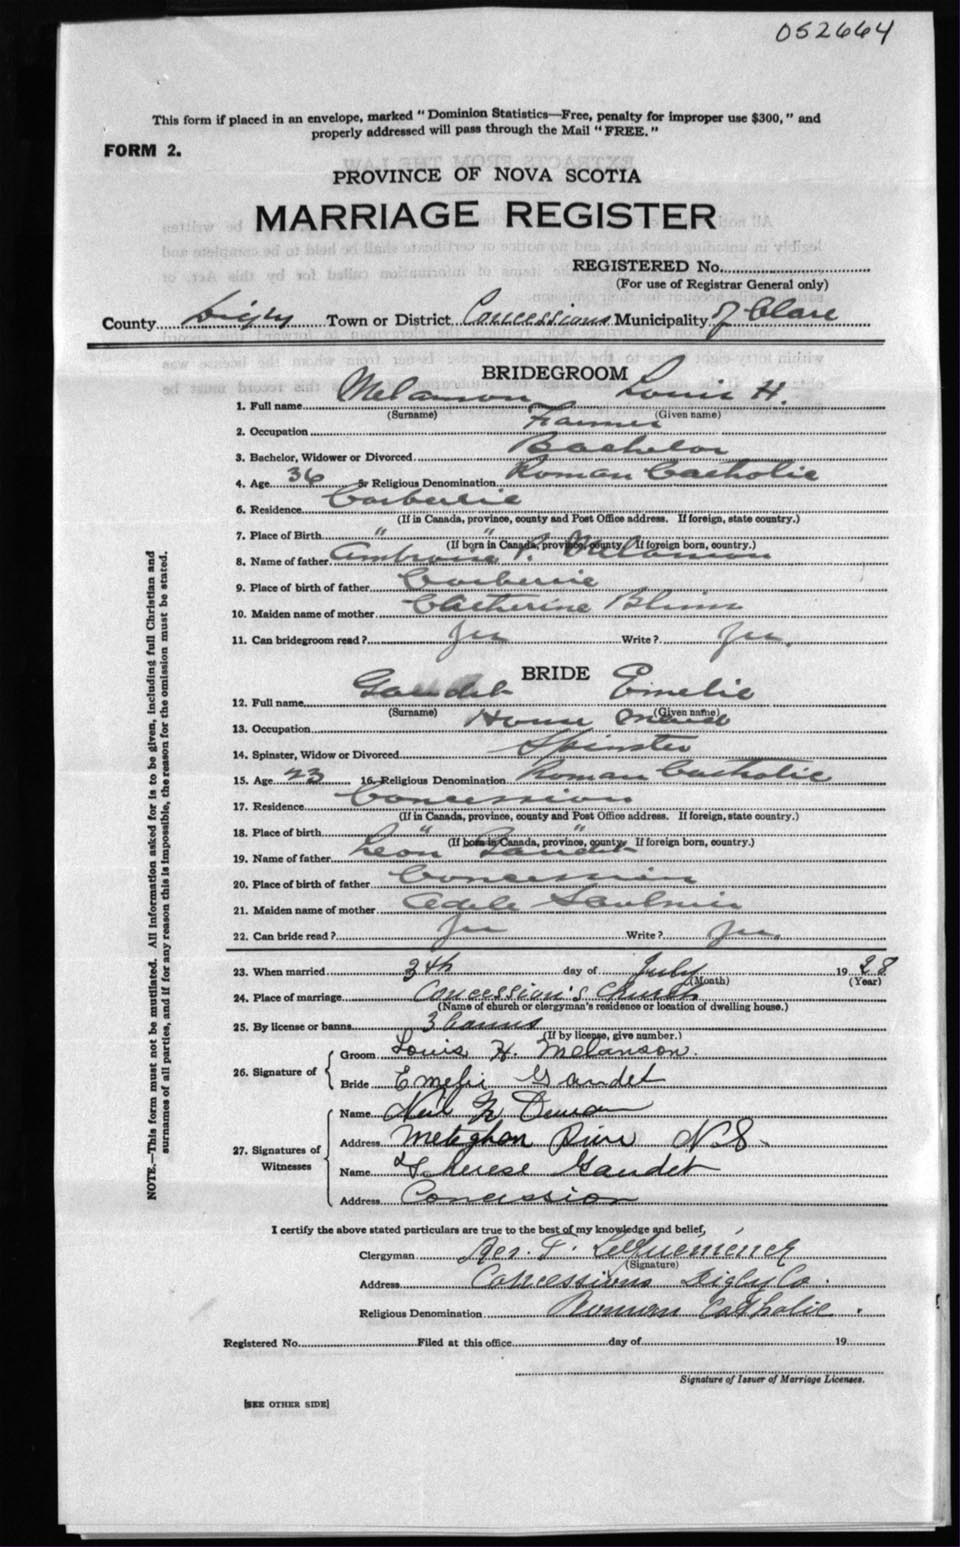 052664
This form if placed in an envelope, marked "Dominion Statistics—Free, penalty for improper use $300," and
properly addressed will pass through the Mail "FREE."
FORM 2.
PROVINCE OF NOVA SCOTIA
MARRIAGE REGISTER
REGISTERED No.
(For use of Registrar General only)
County Digby Town or District Concessions Municipality of Clare
BRIDEGROOM
1. Full name Melanson Louis H.
(Surname) (Given name)
2. Occupation Farmer
3. Bachelor, Widower or Divorced Bachelor
4. Age 36 5. Religious Denomination Roman Catholic
6. Residence Corberrie
(If in Canada, province, county and Post Office address. If foreign, state country.)
7. Place of Birth " "
(If born in Canada, province, county If foreign born, country.)
8. Name of father Ambrose P. Melanson
9. Place of birth of father Corberrie
10. Maiden name of mother Catherine Blinn
11. Can bridegroom read? Yes Write? Yes.
BRIDE
12. Full name Gaudet Emelie
(Surname) (Given name)
13. Occupation House Maid
14. Spinster, Widow or Divorced Spinster
15. Age 23 16. Religious Denomination Roman Catholic
17. Residence Concession
(If in Canada, province, county and Post Office address. If foreign, state country.)
18. Place of birth " "
(If born in Canada, province, county If foreign born, country.)
19. Name of father Leon Gaudet
20. Place of birth of father Concession
21. Maiden name of mother Adele Saulnier
22. Can bride read? Yes Write? Yes.
23. When married 3th day of July 1928
(Month) (Year)
24. Place of marriage Concession's Church
(Name of church or clergyman's residence or location of dwelling house.)
25. By license or banns 3 banns
(If by license, give number.)
26. Signature of
Groom Louis H. Melanson.
Bride Emelie Gaudet
27. Signatures of Witnesses
Name Neil
Address Meteghan River N.S.
Name Therese Gaudet
Address Concession
I certify the above stated particulars are true to the best of my knowledge and belief,
Clergyman Rev. T. LeQuemener
(Signature)
Address Concessions Digby Co.
Religious Denomination Roman Catholic.
Registered No. Filed at this office day of 19
Signature of Issuer of Marriage Licenses.
[SEE OTHER SIDE]
NOTE.—This form must not be mutilated. All information asked for is to be given, including full Christian and
surnames of all parties, and if for any reason this is impossible, the reason for the omission must be stated.